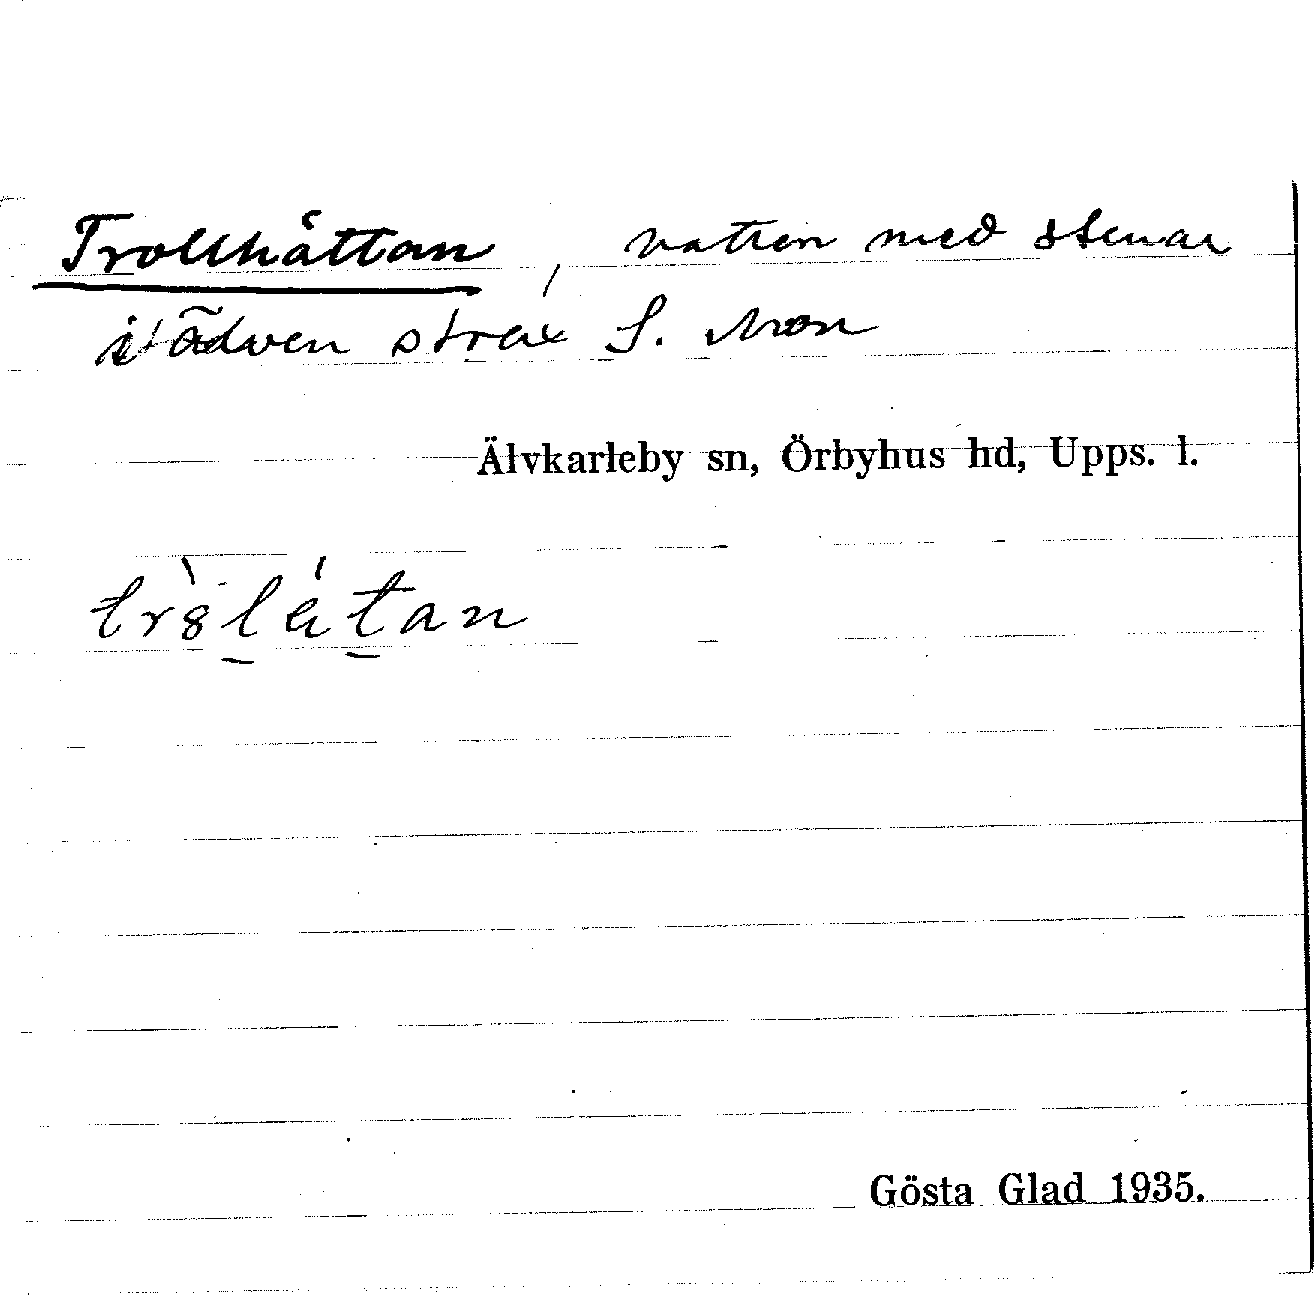 Trollhåttan, vatten med stenar
i älven strax S. Mon
Älvkarleby sn, Örbyhus hd, Upps. l.
Gösta Glad 1935.